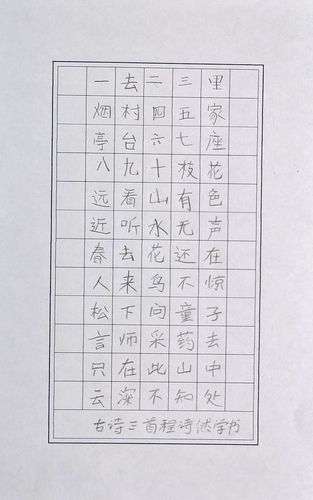 一去二三里
烟村四五家
亭台六七座
八九十枝花
远看山有色
近听水无声
春去花还在
人来鸟不惊
松下问童子
言师采药去
只在此山中
云深不知处
古诗三首程诗学书